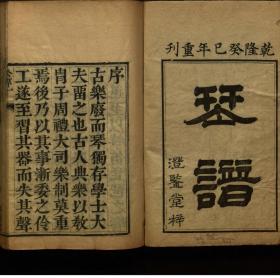 乾隆癸巳年重刊
琴譜
澄鑒堂梓
序
古樂廢而琴獨存學士大
夫畱之也古人典樂以教
胄子周禮大司樂制莫重
焉後乃以其事漸委之伶
工遂至習其器而失其聲